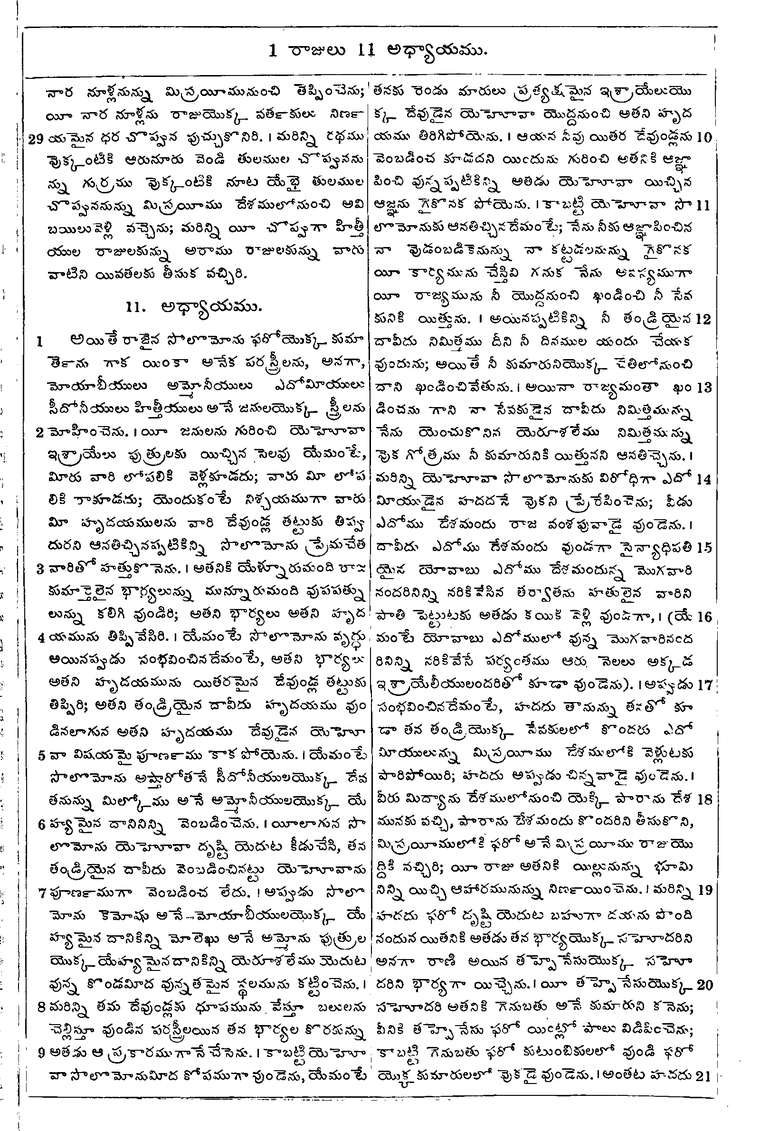 1 రాజులు 11 అధ్యాయము.
నార నూళ్లనున్ను మిస్రయీమునుంచి తెప్పించెను;
యీ నార నూళ్లను రాజుయొక్క వర్తకులు నిర్ణ
29 యమైన ధర చొప్పున పుచ్చుకొనిరి. । మరిన్ని రథము
వొక్కంటికి ఆరునూరు వెండి తులముల చొప్పునను
న్ను గుర్రము వొక్కంటికి నూట యేభై తులముల
చొప్పుననున్ను మిస్రయీము దేశములోనుంచి అవి
బయిలువెళ్లి వచ్చెను; మరిన్ని యీ చొప్పుగా హిత్తీ
యుల రాజులకున్ను అరాము రాజులకున్ను వారు
వాటిని యివతలకు తీసుక వచ్చిరి.
11. అధ్యాయము.
1 అయితే రాజైన సొలొమోను ఫరోయొక్క కుమా
ర్తెను గాక యింకా అనేక పరస్త్రీలను, అనగా,
మోయాబీయులు అమ్మోనీయులు ఎదోమీయులు
సీదోనీయులు హిత్తీయులు అనే జనులయొక్క స్త్రీలను
2 మోహించెను. । యీ జనులను గురించి యెహోవా
ఇశ్రాయేలు పుత్రులకు యిచ్చిన సెలవు యేమంటే,
మీరు వారి లోపలికి వెళ్లకూడదు; వారు మీ లోప
లికి రాకూడదు; యెందుకంటే నిశ్చయముగా వారు
మీ హృదయములను వారి దేవుండ్ల తట్టుకు తిప్పు
దురని ఆనతిచ్చినప్పటికిన్ని సొలొమోను ప్రేమచేత
3 వారితో హత్తుకొనెను. । అతనికి యేళ్నూరుమంది రాజ
కుమార్తెలైన భార్యలున్ను మున్నూరుమంది వుపపత్ను
లున్ను కలిగి వుండిరి; అతని భార్యలు అతని హృద
4 యమును తిప్పివేసిరి. । యేమంటే సొలొమోను వృద్ధు
అయినప్పుడు సంభవించినదేమంటే, అతని భార్యలు
అతని హృదయమును యితరమైన దేవుండ్ల తట్టుకు
తిప్పిరి; అతని తండ్రియైన దావీదు హృదయము వుం
డినలాగున అతని హృదయము దేవుడైన యెహో
5 వా విషయమై పూర్ణము కాక పోయెను. । యేమంటే
సొలొమోను అష్తారోతనే సీదోనీయులయొక్క దేవ
తనున్ను మిల్కోము అనే అమ్మోనీయులయొక్క యే
6 హ్యమైన దానినిన్ని వెంబడించెను. । యీలాగున సొ
లొమోను యెహోవా దృష్టి యెదుట కీడుచేసి, తన
తండ్రియైన దావీదు వెంబడించినట్టు యెహోవాను
7 పూర్ణముగా వెంబడించ లేదు. । అప్పుడు సొలొ
మోను కెమోషు అనే మోయాబీయులయొక్క యే
హ్యమైన దానికిన్ని మోలెఖు అనే అమ్మోను పుత్రుల
యొక్క యేహ్యమైనదానికిన్ని యెరూశలేము యెదుట
వున్న కొండమీద వున్నతమైన స్థలమును కట్టించెను. ।
8 మరిన్ని తమ దేవుండ్లకు ధూపమును వేస్తూ బలులను
చెల్లిస్తూ వుండిన పరస్త్రీలయిన తన భార్యల కొరకున్ను
9 అతడు ఆ ప్రకారముగానే చేసెను. । కాబట్టి యెహో
వా సొలొమోనుమీద కోపముగా వుండెను, యేమంటే
తనకు రెండు మారులు ప్రత్యక్షమైన ఇశ్రాయేలుయొ
క్క దేవుడైన యెహోవా యొద్దనుంచి అతని హృద
యము తిరిగిపోయెను. । ఆయన నీవు యితర దేవుండ్లను 10
వెంబడించ కూడదని యిందును గురించి అతనికి ఆజ్ఞా
పించి వున్నప్పటికిన్ని అతడు యెహోవా యిచ్చిన
ఆజ్ఞను గైకొనక పోయెను. । కాబట్టి యెహోవా సొ 11
లొమోనుకు ఆనతిచ్చినదేమంటే; నేను నీకు ఆజ్ఞాపించిన
నా వుడంబడికెనున్ను నా కట్టడలనున్ను గైకొనక
యీ కార్యమును చేస్తివి గనుక నేను అవశ్యముగా
యీ రాజ్యమును నీ యొద్దనుంచి ఖండించి నీ సేవ
కునికి యిత్తును. । అయినప్పటికిన్ని నీ తండ్రియైన 12
దావీదు నిమిత్తము దీని నీ దినముల యందు చేయక
వుందును; అయితే నీ కుమారునియొక్క చేతిలోనుంచి
దాని ఖండించివేతును. । అయినా రాజ్యమంతా ఖం 13
డించను గాని నా సేవకుడైన దావీదు నిమిత్తమున్ను
నేను యెంచుకొనిన యెరూశలేము నిమిత్తమున్ను
వొక గోత్రము నీ కుమారునికి యిత్తునని ఆనతిచ్చెను. ।
మరిన్ని యెహోవా సొలొమోనుకు విరోధిగా ఎదో 14
మీయుడైన హదదనే వొకని ప్రేరేపించెను; వీడు
ఎదోము దేశమందు రాజ వంశపువాడై వుండెను. ।
దావీదు ఎదోము దేశమందు వుండగా సైన్యాధిపతి 15
యైన యోవాబు ఎదోము దేశమందున్న మొగవారి
నందరినిన్ని నరికివేసిన తర్వాతను హతులైన వారిని
పాతి పెట్టుటకు అతడు కయికి వెళ్లి వుండగా, । (యే 16
మంటే యోవాబు ఎదోములో వున్న మొగవారినంద
రినిన్ని నరికివేసే పర్యంతము ఆరు నెలలు అక్కడ
ఇశ్రాయేలీయులందరితో కూడా వుండెను). । అప్పుడు 17
సంభవించినదేమంటే, హదదు తానున్ను తనతో కూ
డా తన తండ్రియొక్క సేవకులలో కొందరు ఎదో
మీయులున్ను మిస్రయీము దేశములోకి వెళ్లుటకు
పారిపోయిరి; హదదు అప్పుడు చిన్నవాడై వుండెను. ।
వీరు మిద్యాను దేశములోనుంచి యెక్కి పారాను దేశ 18
మునకు వచ్చి, పారాను దేశమందు కొందరిని తీసుకొని,
మిస్రయీములోకి ఫరో అనే మిస్రయీము రాజుయొ
ద్దికి వచ్చిరి; యీ రాజు అతనికి యిల్లునున్ను భూమి
నిన్ని యిచ్చి ఆహారమునున్ను నిర్ణయించెను. । మరిన్ని 19
హదదు ఫరో దృష్టి యెదుట బహుగా దయను పొంది
నందున యితనికి అతడు తన భార్యయొక్క సహోదరిని
అనగా రాణి అయిన తహ్పెనేసుయొక్క సహో
దరిని భార్యగా యిచ్చెను. । యీ తహ్పెనేసుయొక్క 20
సహోదరి అతనికి గెనుబతు అనే కుమారుని కనెను;
వీనికి తహ్పెనేసు ఫరో యింట్లో పాలు విడిపించెను;
కాబట్టి గెనుబతు ఫరో కుటుంబికులలో వుండి ఫరో
యొక్క కుమారులలో వొకడై వుండెను. । అంతట హదదు 21